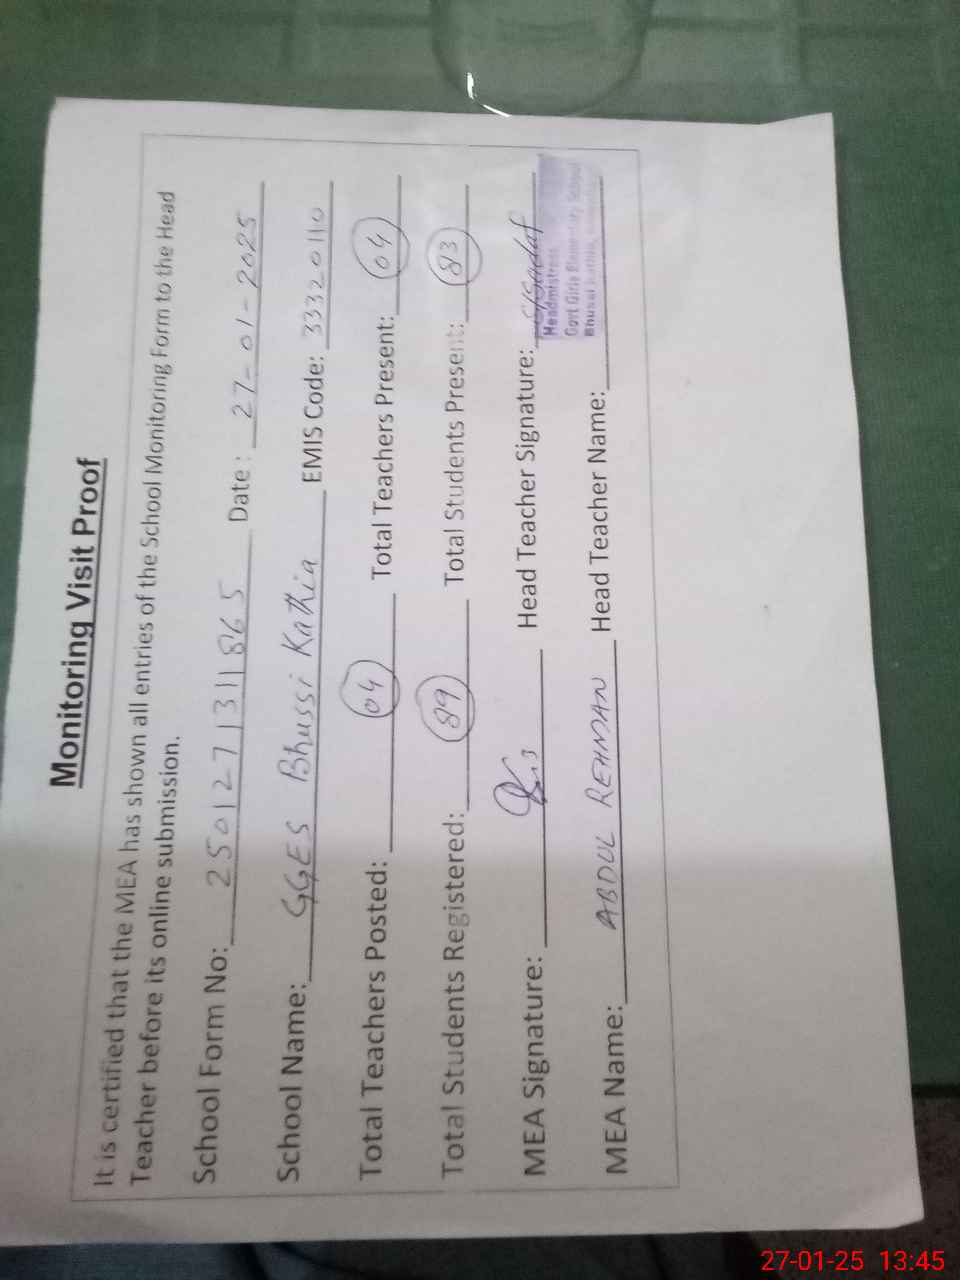 Monitoring Visit Proof
It is certified that the MEA has shown all entries of the School Monitoring Form to the Head
Teacher before its online submission.
School Form No: 2501271311865 Date: 27-01-2025
School Name: GGES Bhussi Kathia EMIS Code: 33320110
Total Teachers Posted: 04 Total Teachers Present: 04
Total Students Registered: 89 Total Students Present: 83
MEA Signature: Head Teacher Signature: Sadaf
Headmistress
Govt Girls Elementary School
MEA Name: ABDUL REHMAN Head Teacher Name:
27-01-25 13:45